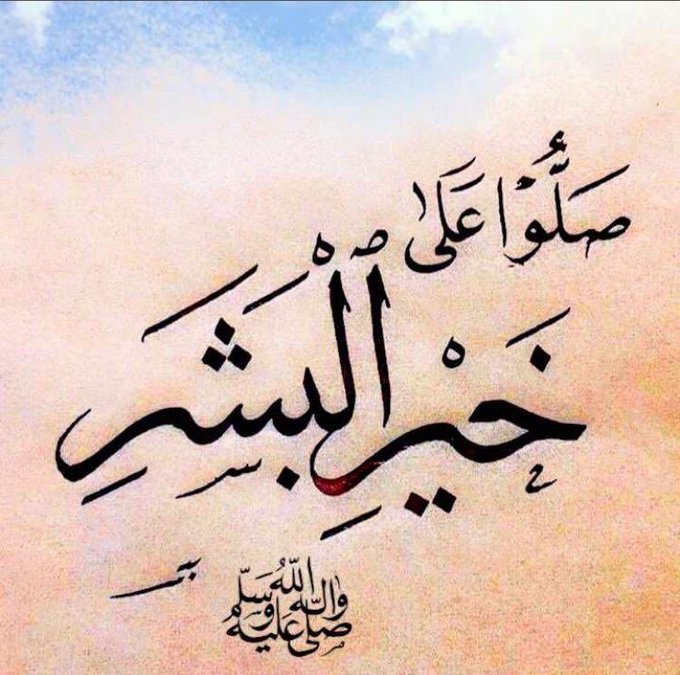 صَلُّوْا عَلَىٰ
خَيْرِ الْبَشَرِ
صلى الله عليه وآله وسلم